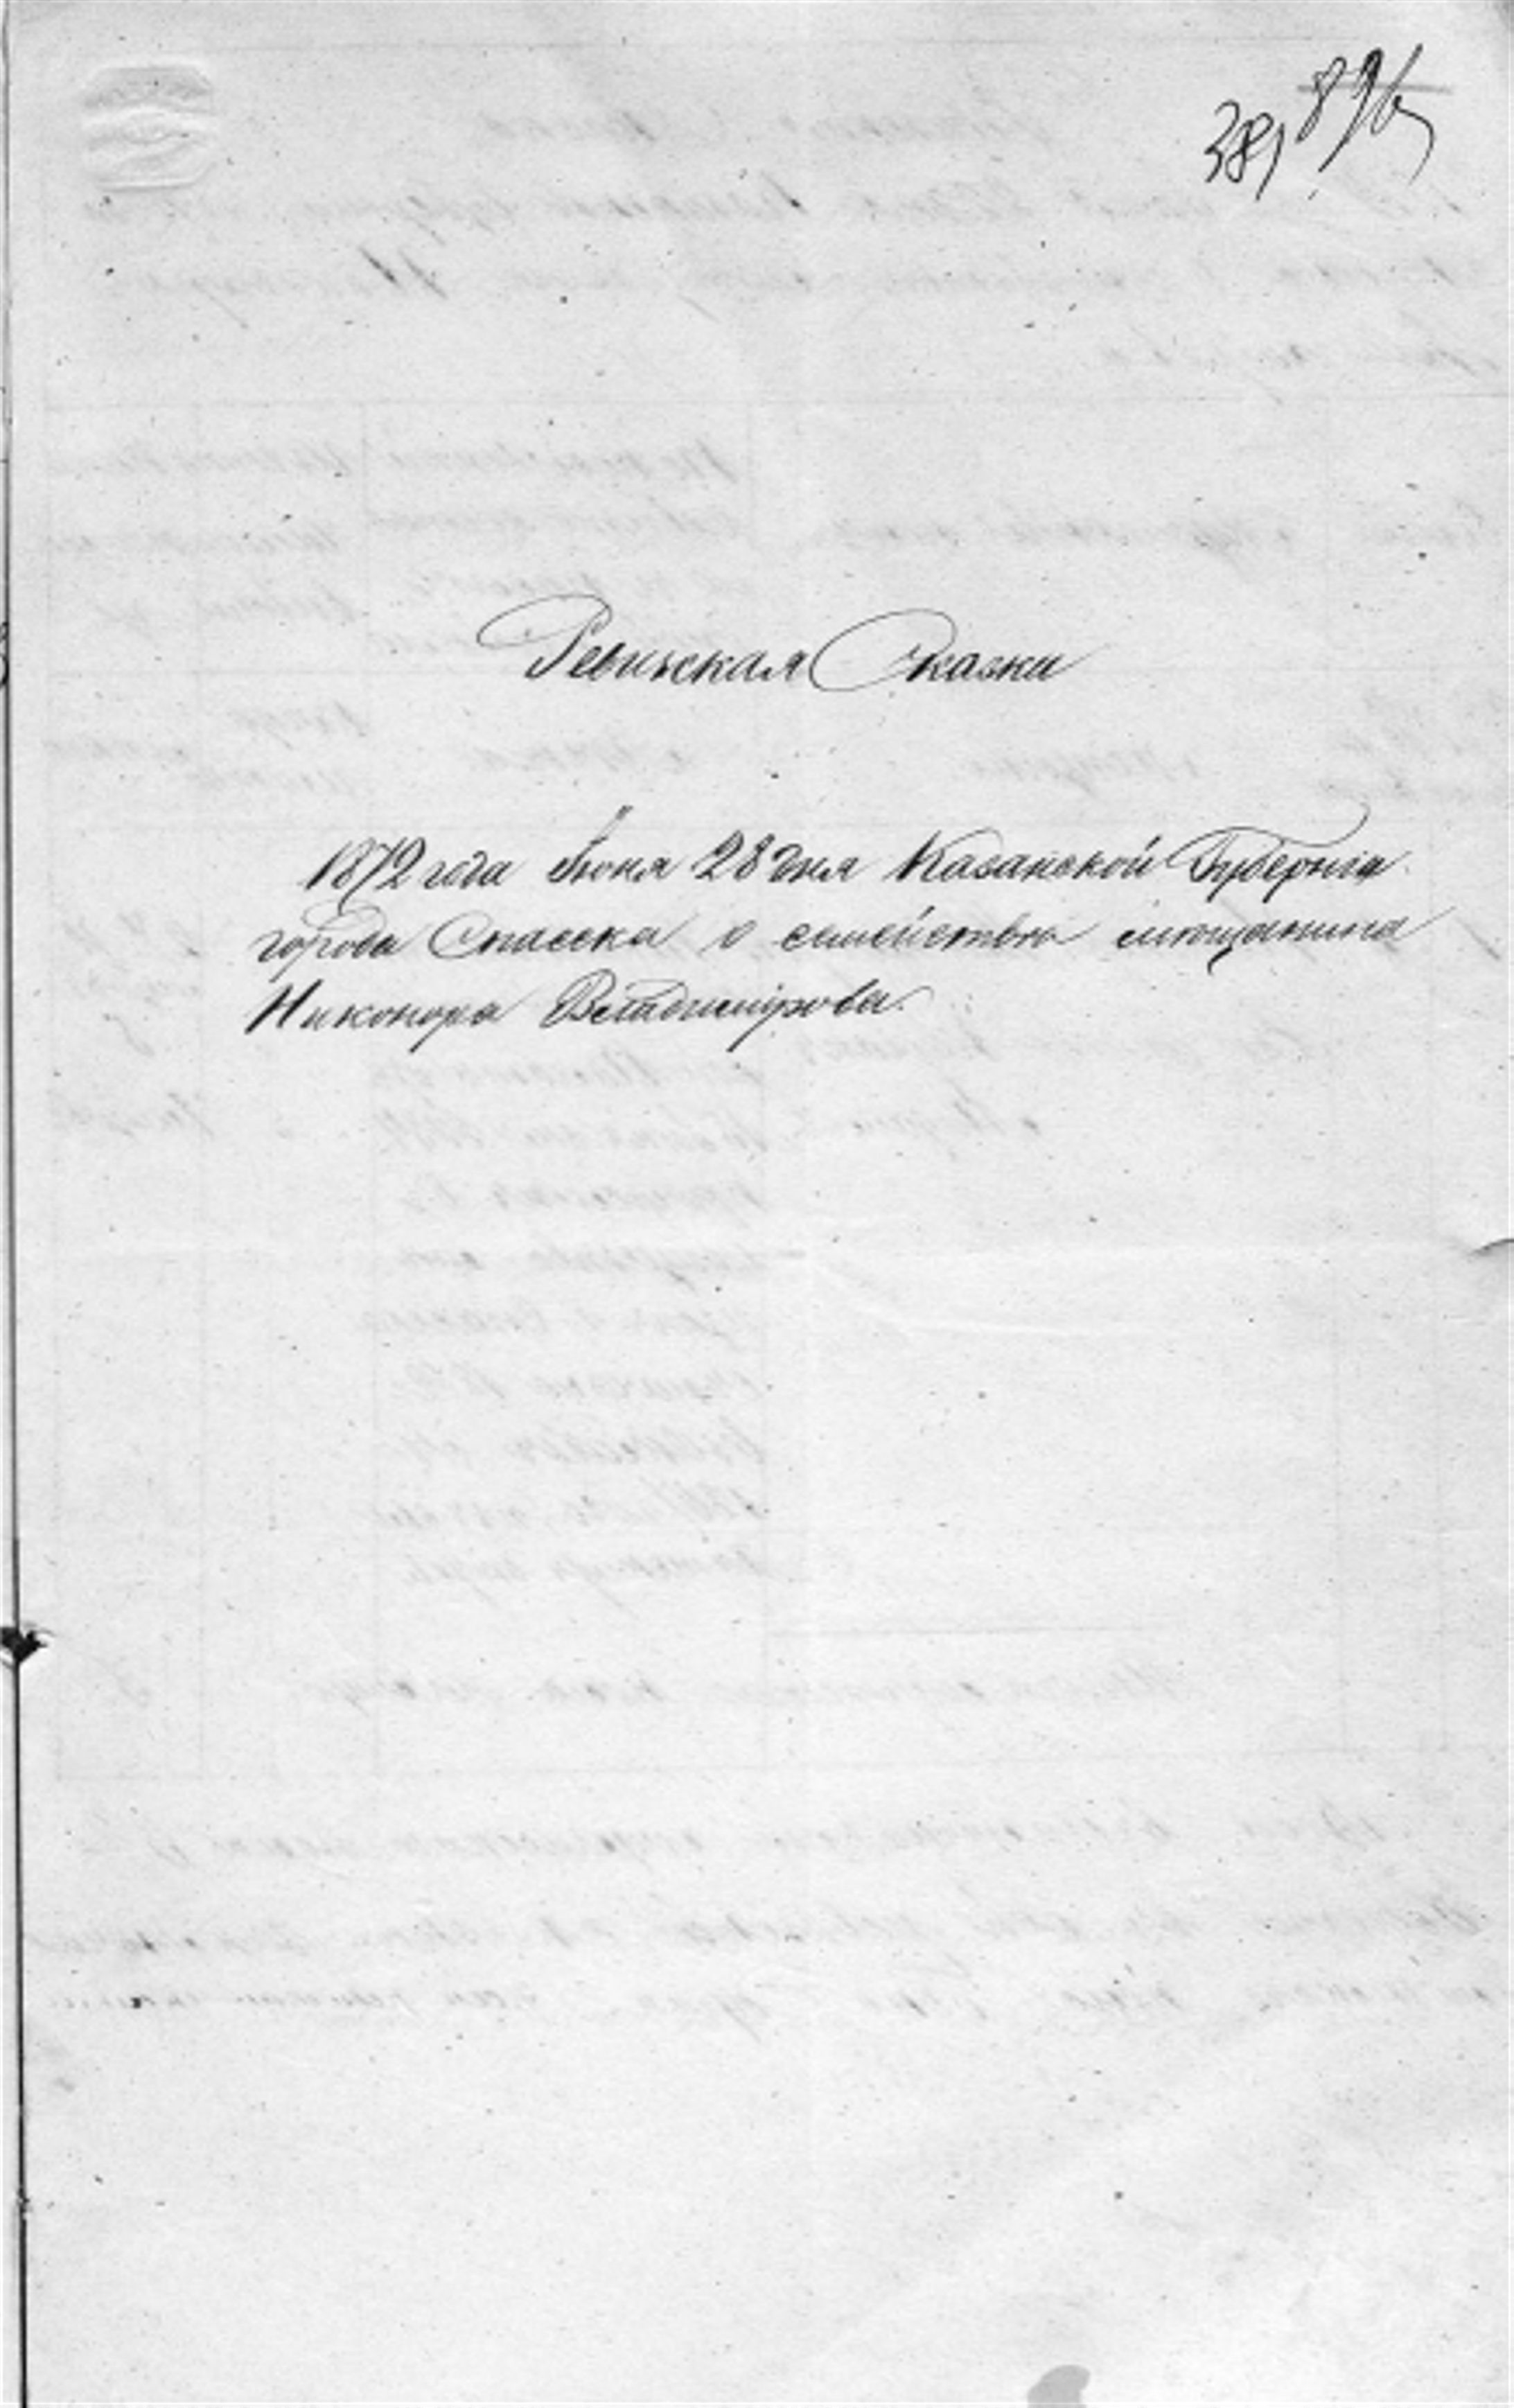 381
Ревизская Сказка
1872 года Іюня 28 дня Казанской Губерніи
города Спасска о семействѣ мѣщанина
Никонора Владимірова.